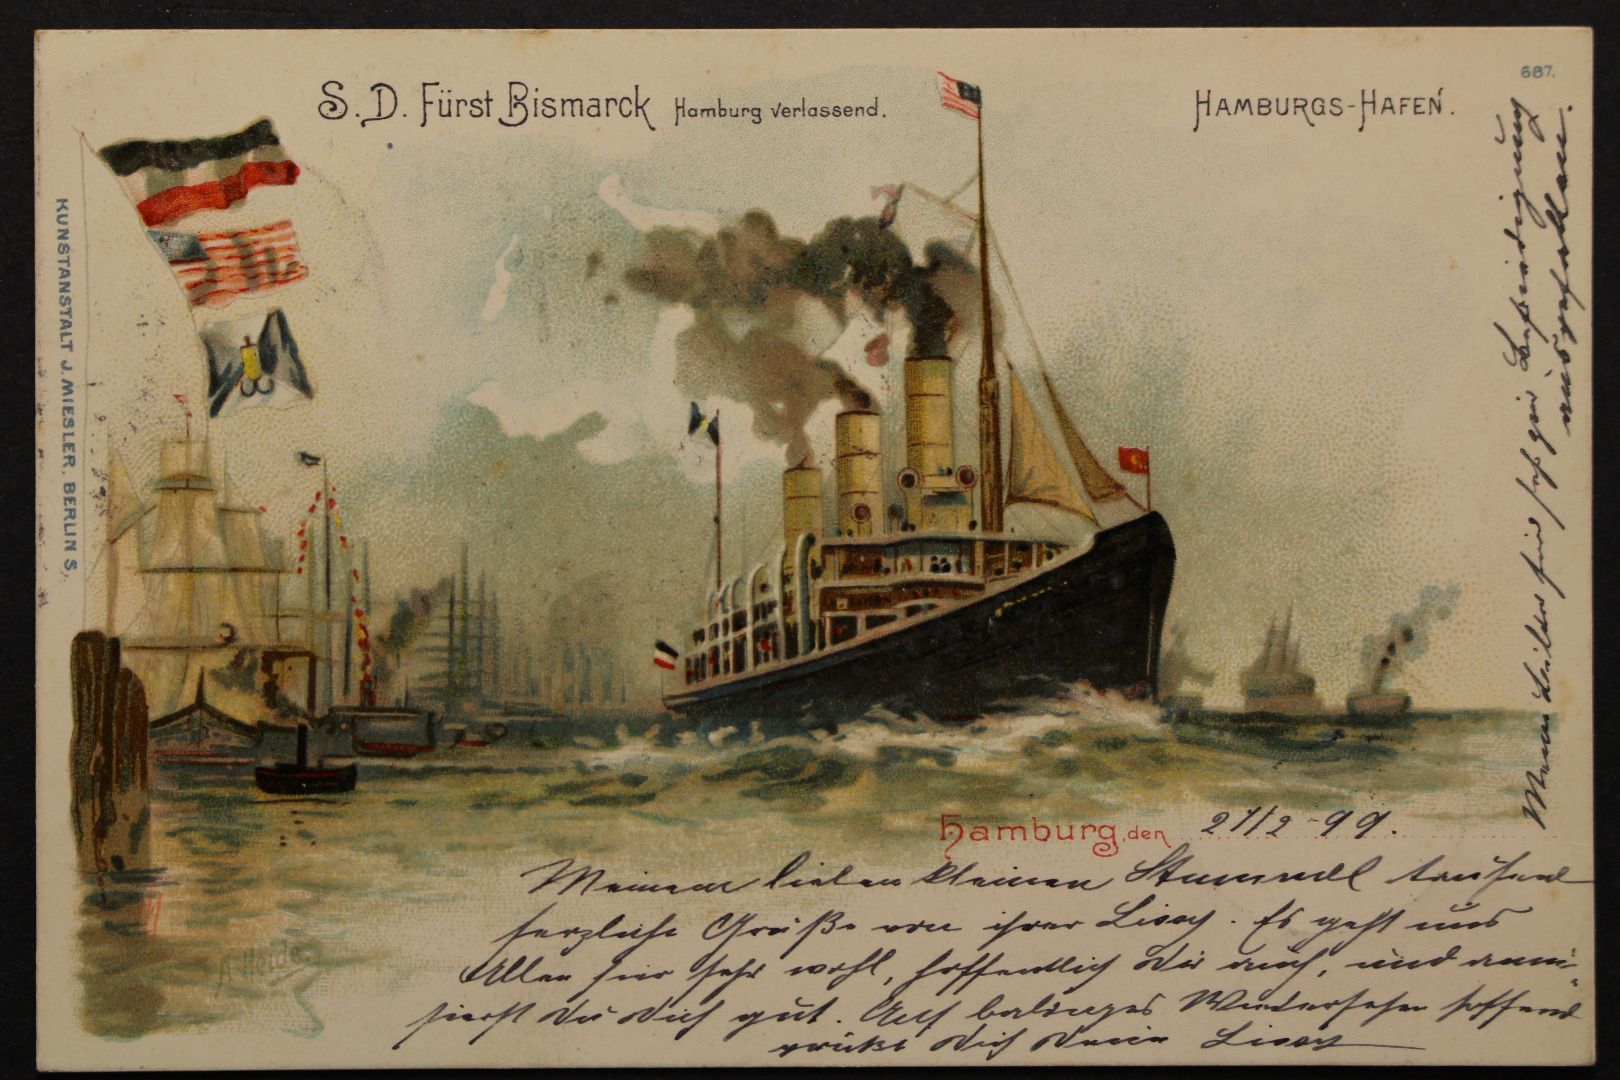 S. D. Fürst Bismarck Hamburg verlassend.
HAMBURGS-HAFEN.
687.
KUNSTANSTALT J. MIESLER, BERLIN S.
Hamburg, den 27/2 - 99.
Meinem lieben kleinen tausend
herzliche Grüße von ihrer Lissy. Es geht uns
Allen hier sehr wohl, hoffentlich Dir auch, und amü-
sierst Du Dich gut. Auf baldiges Wiedersehen hoffend
grüßt Dich Deine Lissy
Meine Bilder sind sehr zur Befriedigung
ausgefallen.